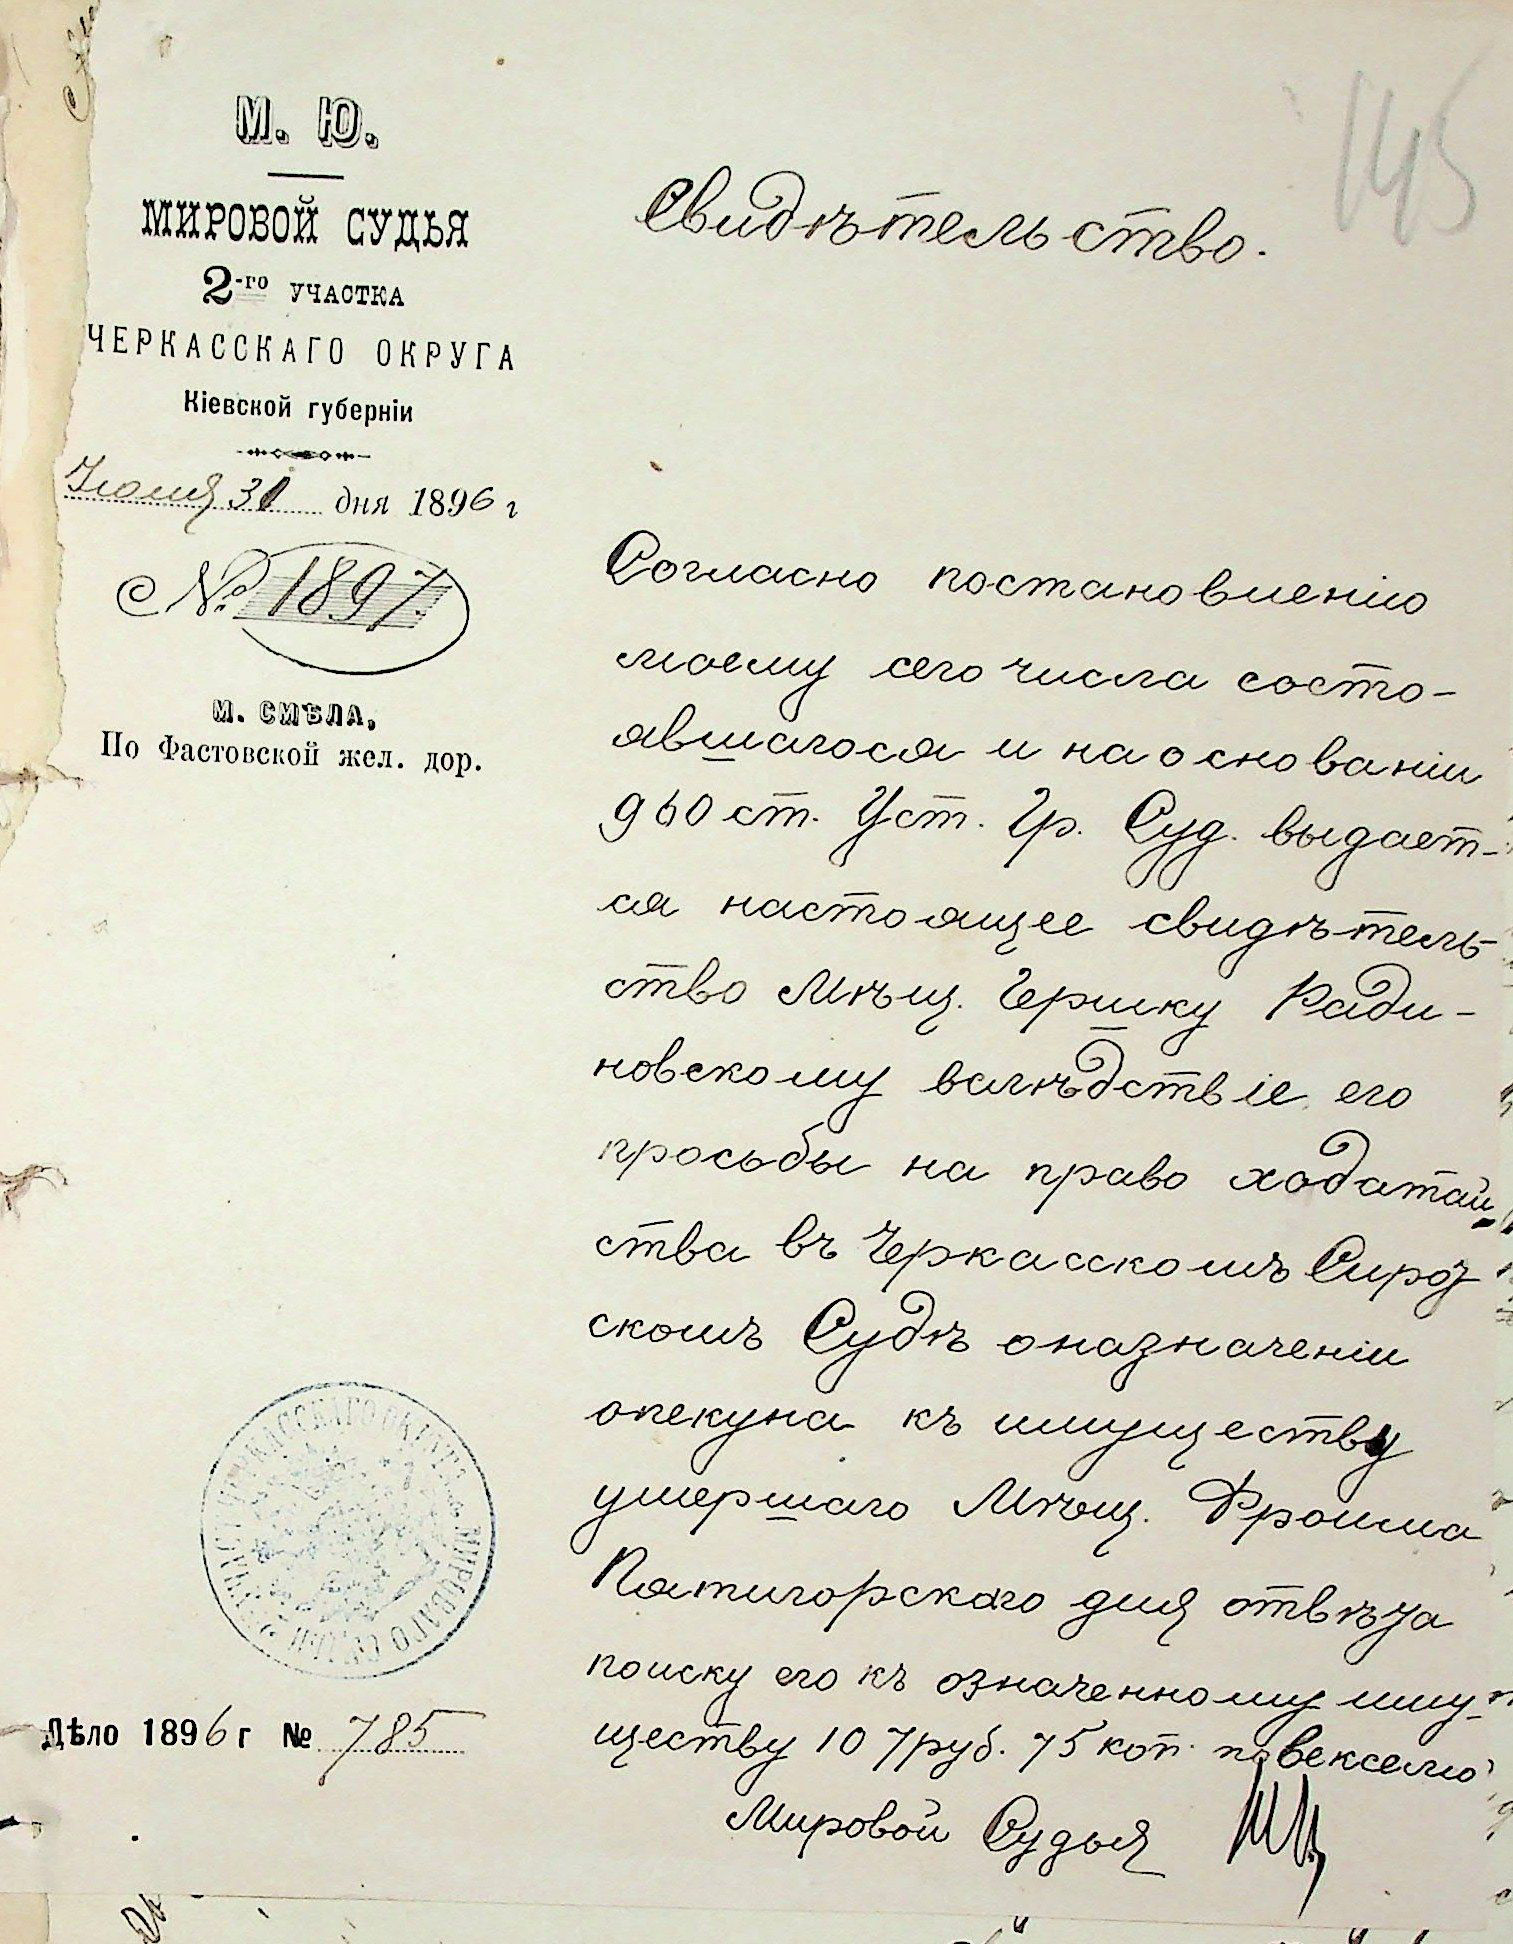 145
М. Ю.
МИРОВОЙ СУДЬЯ
2-го УЧАСТКА
ЧЕРКАССКАГО ОКРУГА
Кіевской губерніи
31 дня 1896 г
№ 1897
М. СМѢЛА,
По Фастовской жел. дор.
Свидѣтельство.
Согласно постановленію
моему сего числа состо-
явшагося и на основаніи
960 ст. Уст. Гр. Суд. выдает-
ся настоящее свидѣтель-
ство Мѣщ. Гершку Ради-
новскому вслѣдствіе его
просьбы на право ходатай
ства въ Черкасскомъ Сирот
скомъ Судѣ о назначеніи
опекуна къ имуществу
умершаго Мѣщ. Фроима
Пятигорскаго для отвѣта
по иску его къ означенному иму-
ществу 107 руб. 75 коп. по векселю
Мировой Судья
2 УЧ. ЧЕРКАССКАГО ОКРУГА МИРОВАГО СУДЬИ
Дѣло 1896 г № 785